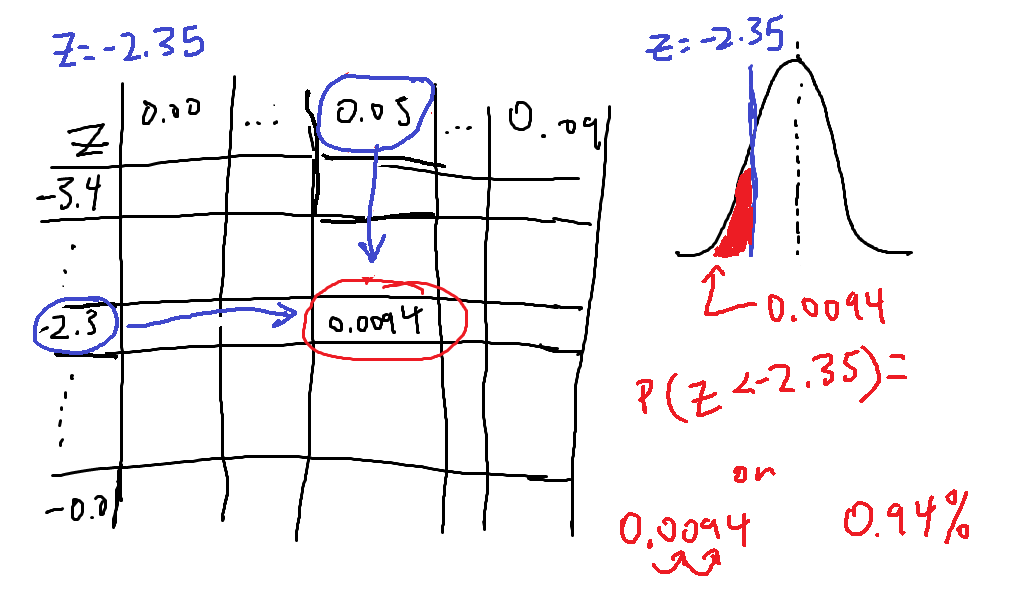 Z=-2.35
Z 0.00 ... 0.05 ... 0.09
-3.4
-2.3 0.0094
-0.0
Z=-2.35
0.0094
P(Z<-2.35)=
or
0.0094 0.94%